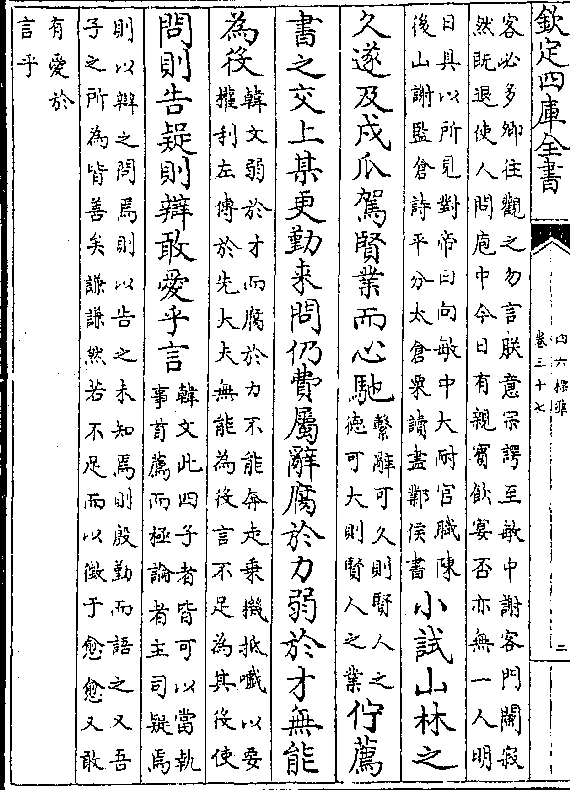 欽定四庫全書
卷三十七
二
客必多卿往觀之勿言朕意宗諤至敏中謝客門闌寂
然既退使人問庖中今日有親賓飲宴否亦無一人明
日具以所見對帝曰向敏中大耐官職陳
後山謝監倉詩平分太倉粟讀盡鄴侯書
小試山林之
久遂及戍瓜駕賢業而心馳
繫辭可久則賢人之
德可大則賢人之業
佇薦
書之交上某更勤来問仍費屬辭腐於力弱於才無能
為役
韓文弱於才而腐於力不能奔走乗機抵巇以要
權利左傳於先大夫無能為役言不足為其役使
問則告疑則辯敢愛乎言
韓文此四子者皆可以當執
事首薦而極論者主司疑焉
則以辯之問焉則以告之未知焉則殷勤而語之又吾
子之所為皆善矣謙謙然若不足而以徴于愈愈又敢
有愛於
言乎